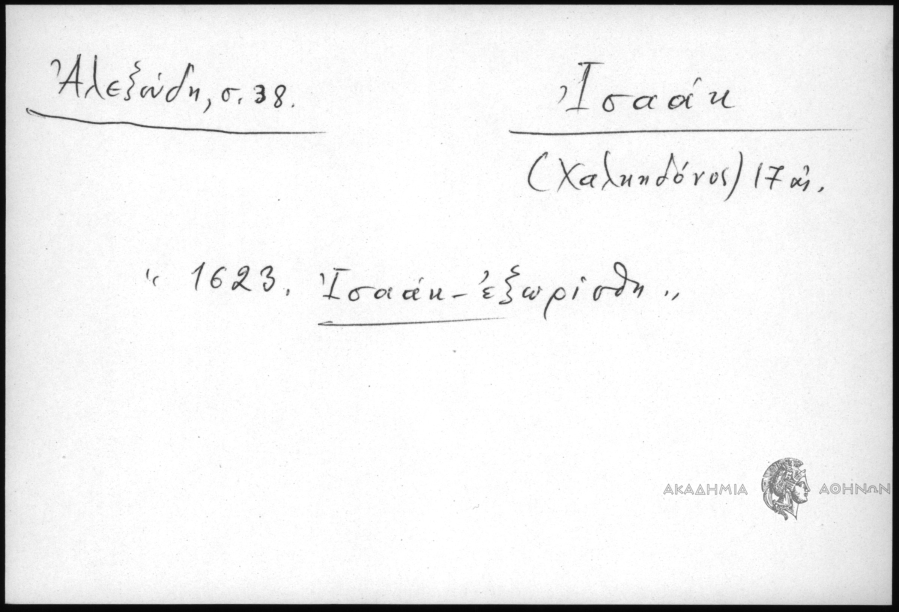 Ἀλεξούδη, σ. 38.
Ἰσαάκ
(Χαλκηδόνος) 17 αἰ.
" 1623. Ἰσαάκ - ἐξωρίσθη "
ΑΚΑΔΗΜΙΑ ΑΘΗΝΩΝ